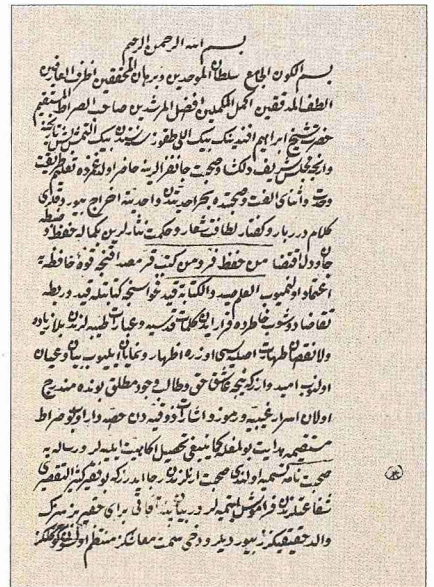 بسم الله الرحمن الرحيم
بسم الكون الجامع سلطان الموحدين وبرهان المحققين اظرف العارفين
الطف المدققين اكمل المكملين افضل المرشدين صاحب الصراط المستقيم
حضرت شيخ ابراهيم افندينك بيك اللى طقوز سنه سندن بيك التمش
مجلس شريف دلكشا وصحبت جانفزالرينه حاضر اولد تعليم طريقت
وحدت واثناى الفت وصحبتده بحر احديتدن واحديته اخراج بيوردقلرى
كلام دربار وكفتار لطافت شعار وحكمت نثارلرين بكماله حفظ وضبطه
جان ودل اقتضا من حفظ فر ومن كتب قر مصداقنجه قوه حافظه يه
اعتماد اولنميوب العلم صيد والكتابة قيد فحواسنجه كتابتله قيد وربطه
تقاضا دوشوب خاطرده قرار ايدن كلمات قدسيه وعبارات طيبه لرندن بلا زياده
ولا نقصان اصلى اوزره اظهار ونمايان ايليوب بيان وعيان
اولنوب اميددر كه نيجه عاشق حق وطالب وجود مطلق بونده مندرج
اولان اسرار غيبيه ورموز واشارات ذوقيه دن حصه دار اولوب صراط
مستقيمه هدايت بولمغله كما ينبغى تحصيل ايليه لر ورساله يه
صحبت نامه تسميه اولندى صحبت ارنلرندن رجا ايدرز كه بو فقير كثير التقصيرى
شفاعتلرندن فراموش ايتميه لر ودر براى حضر پيرمزك
والد حقيقيكز بيورديلر ودخى سمت معاشكز منتظم اولسون